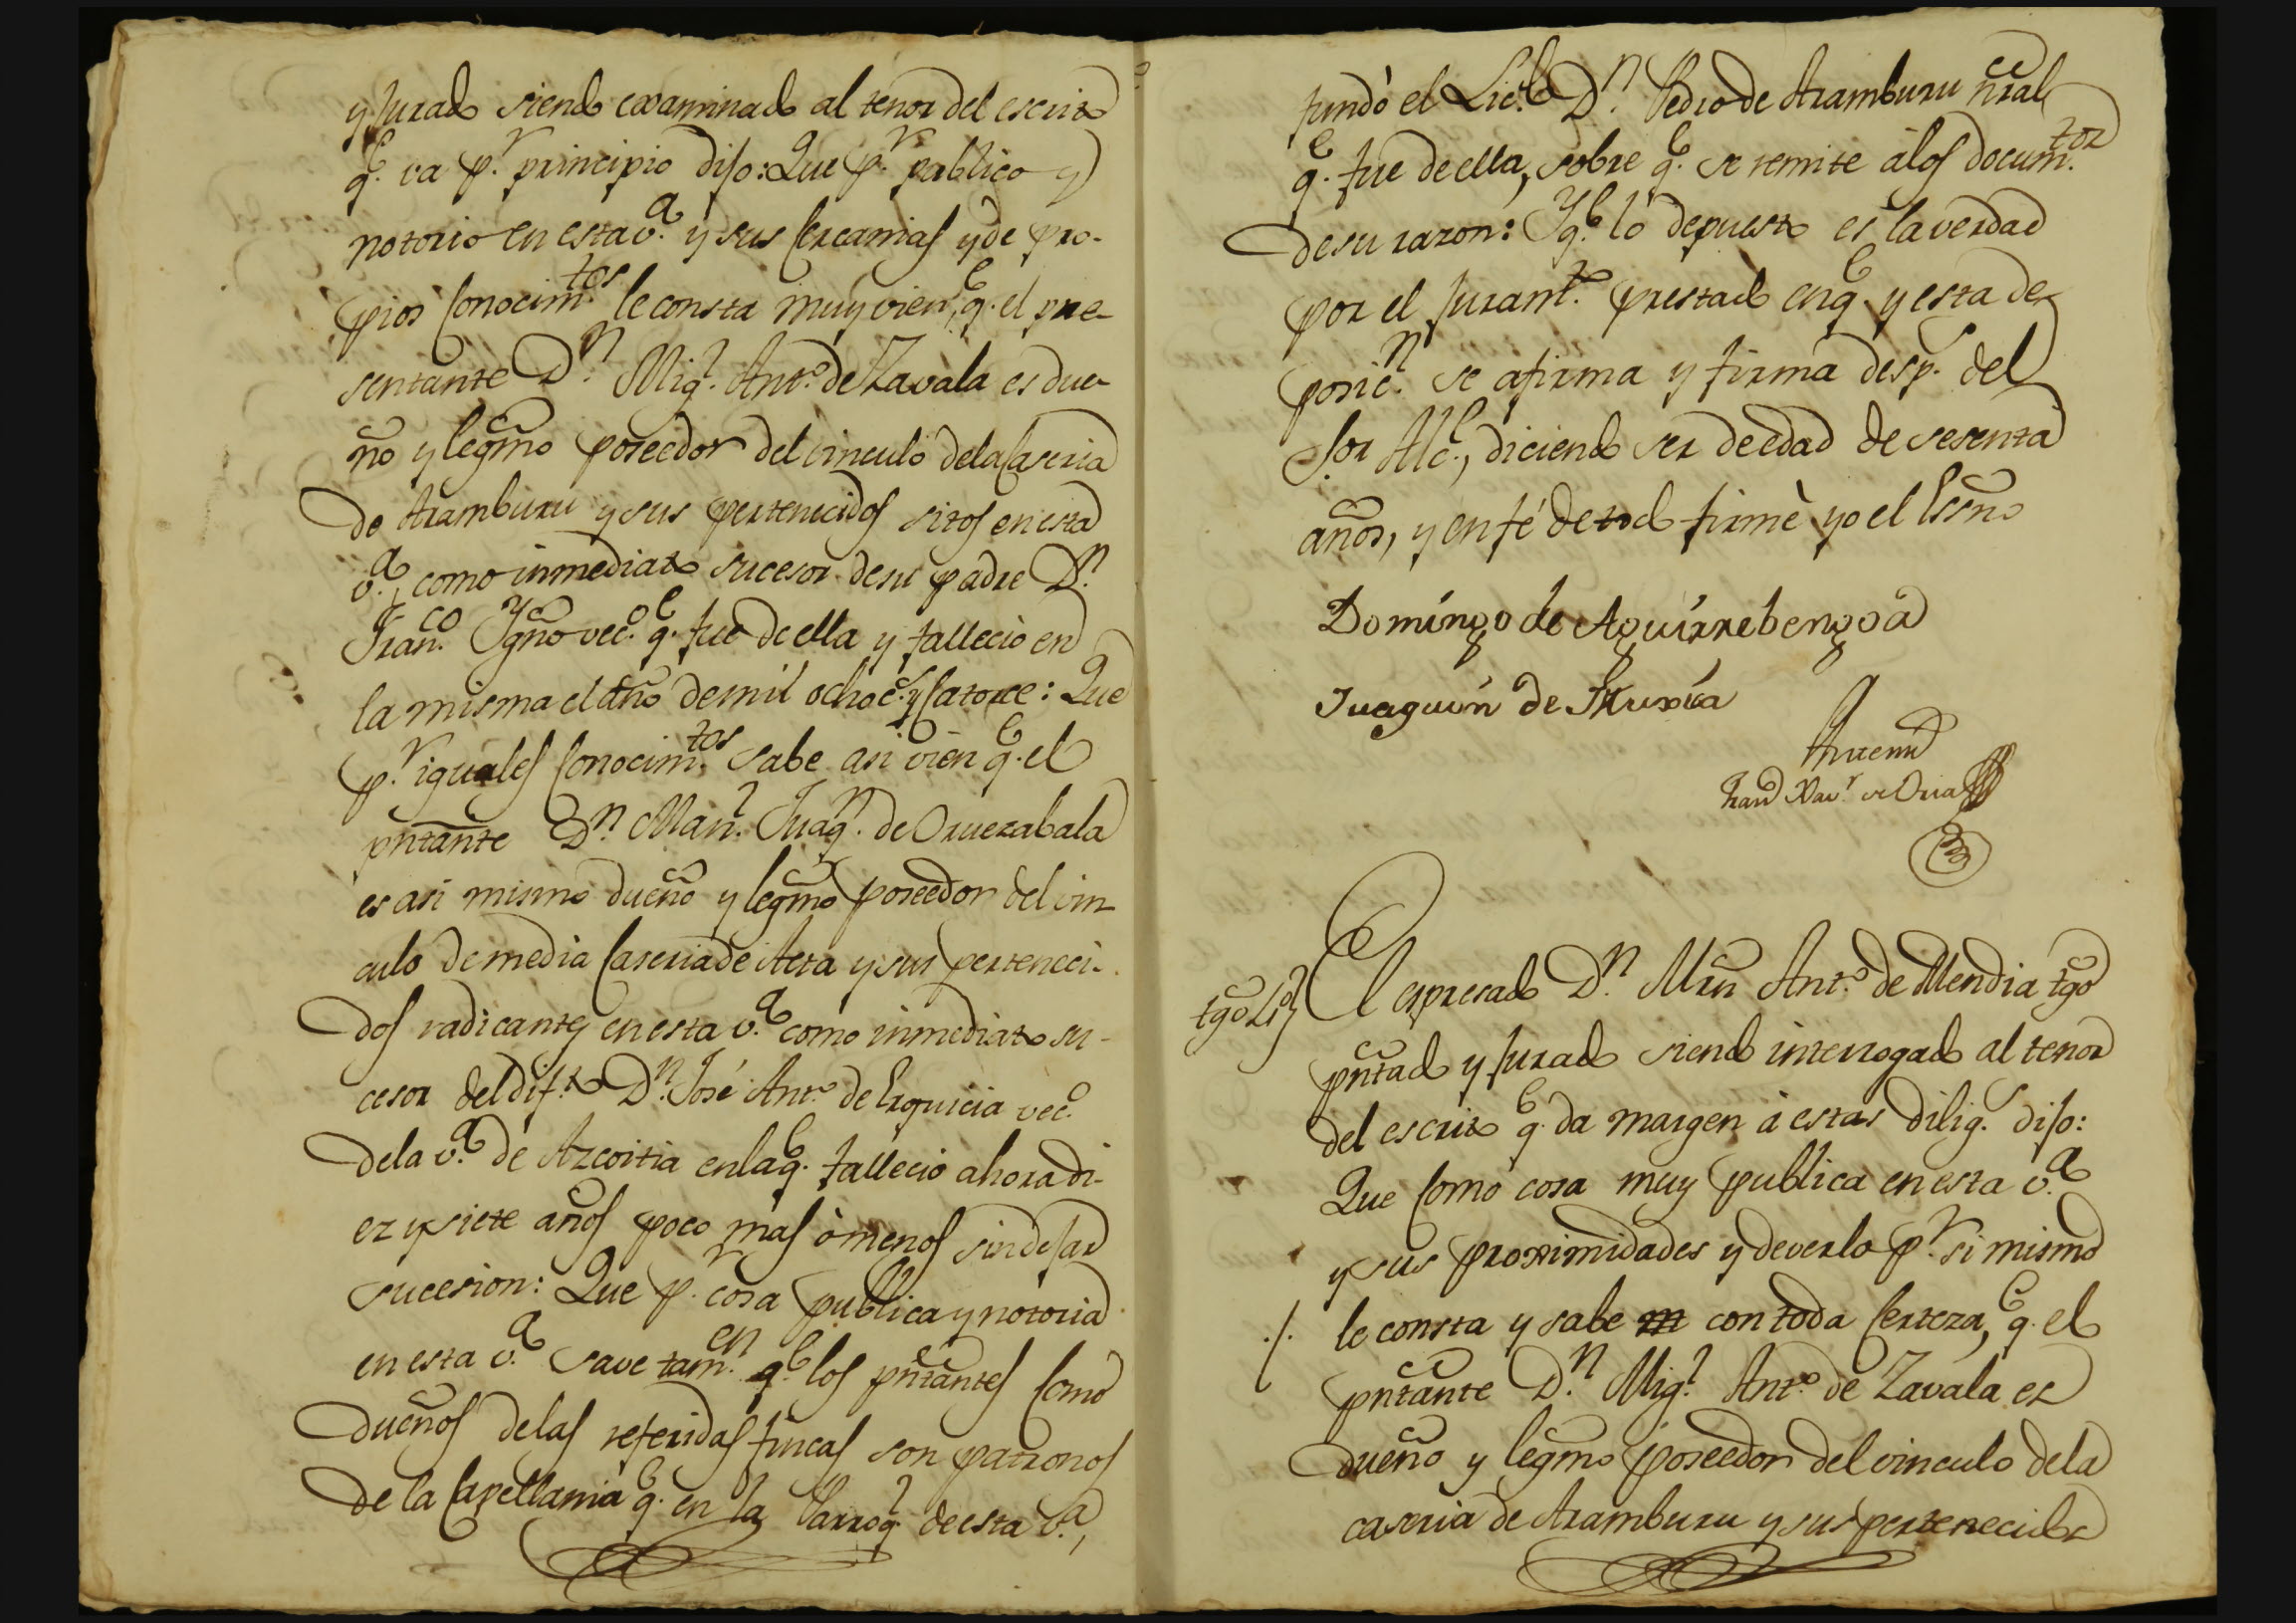 y jurado siendo exsaminado al tenor del escrito
q.e va p.r principio dijo: Que p.r publico y
notorio en esta v.a y sus sercanias y de pro-
pios conocim.tos le consta muy vien, q.e el pre-
sentante D.n Mig.l Ant.o de Zavala es due-
ño y legmo poseedor del vinculo dela caseria
de Aramburu y sus pertenecidos sitos en esta
v.a, como inmediato sucesor de su padre D.n
Fran.co Ygño vec.o q.e fue de ella y fallecio en
la misma el año de mil ochoc.s y catorce: Que
p.r iguales conocim.tos sabe asi vien q.e el
pntante D.n Man.l Juaq.n de Oruezabala
es asi mismo dueño y legmo poseedor del vin
culo de media caseria de Aeta y sus perteneci-
dos radicantes en esta v.a como inmediato su-
cesor del dif.to D.n José Ant.o de Erquicia vec.o
dela v.a de Azcoitia enlaq.e fallecio ahora di-
ez y siete años poco mas ò menos sin dejar
sucesion: Que p.r cosa publica y notoria
en esta v.a save tam.en q.e los pntantes como
dueños delas referidas fincas son patronos
de la capellania q.e en la Parroq.l de esta v.a,
fundò el Lic.do D.n Pedro de Aramburu nral
q.e fue de ella, sobre q.e se remite álos docum.tos
de su razon: Yq.e lo depuesto es la verdad
por el juram.to prestado enq.e y esta de
posic.n se afirma y firma desp.s del
Sor Alc.e, diciendo ser de edad de sesenta
años, y en fé de todo firmè yo el Essno
Domingo de Aguirrebengoa
Juaquin de Ykuxia
Antemi
Fran.co Xav.r de Oria
tgo 2.o
El espresado D.n Mrn Ant.o de Mendia tgo
pntado y jurado siendo interrogado al tenor
del escrito q.e da margen á estas dilig.s dijo:
Que como cosa muy publica en esta v.a
y sus proximidades y deverlo p.r si mismo
./. le consta y sabe con toda certeza, q.e el
pntante D.n Mig.l Ant.o de Zavala es
dueño y legmo poseedor del vinculo dela
caseria de Aramburu y sus pertenecidos